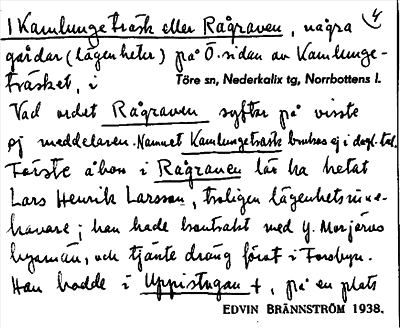 I Kamlunge träsk eller Rågraven, några 4
gårdar (lägenheter) på Ö. sidan av Kamlunge-
träsket, i Töre sn, Nederkalix tg, Norrbottens l.
Vad ordet Rågraven syftar på visste
ej meddelaren. Namnet Kamlungeträsk brukas ej i dagl. tal.
Förste åbon i Rågraven lär ha hetat
Lars Henrik Larsson, troligen lägenhetsinne-
havare; han hade kontrakt med y. Morjärvs
byamän, och tjänte dräng först i Forsbyn.
Han bodde i Uppistugan +, på en plats
EDVIN BRÄNNSTRÖM 1938.